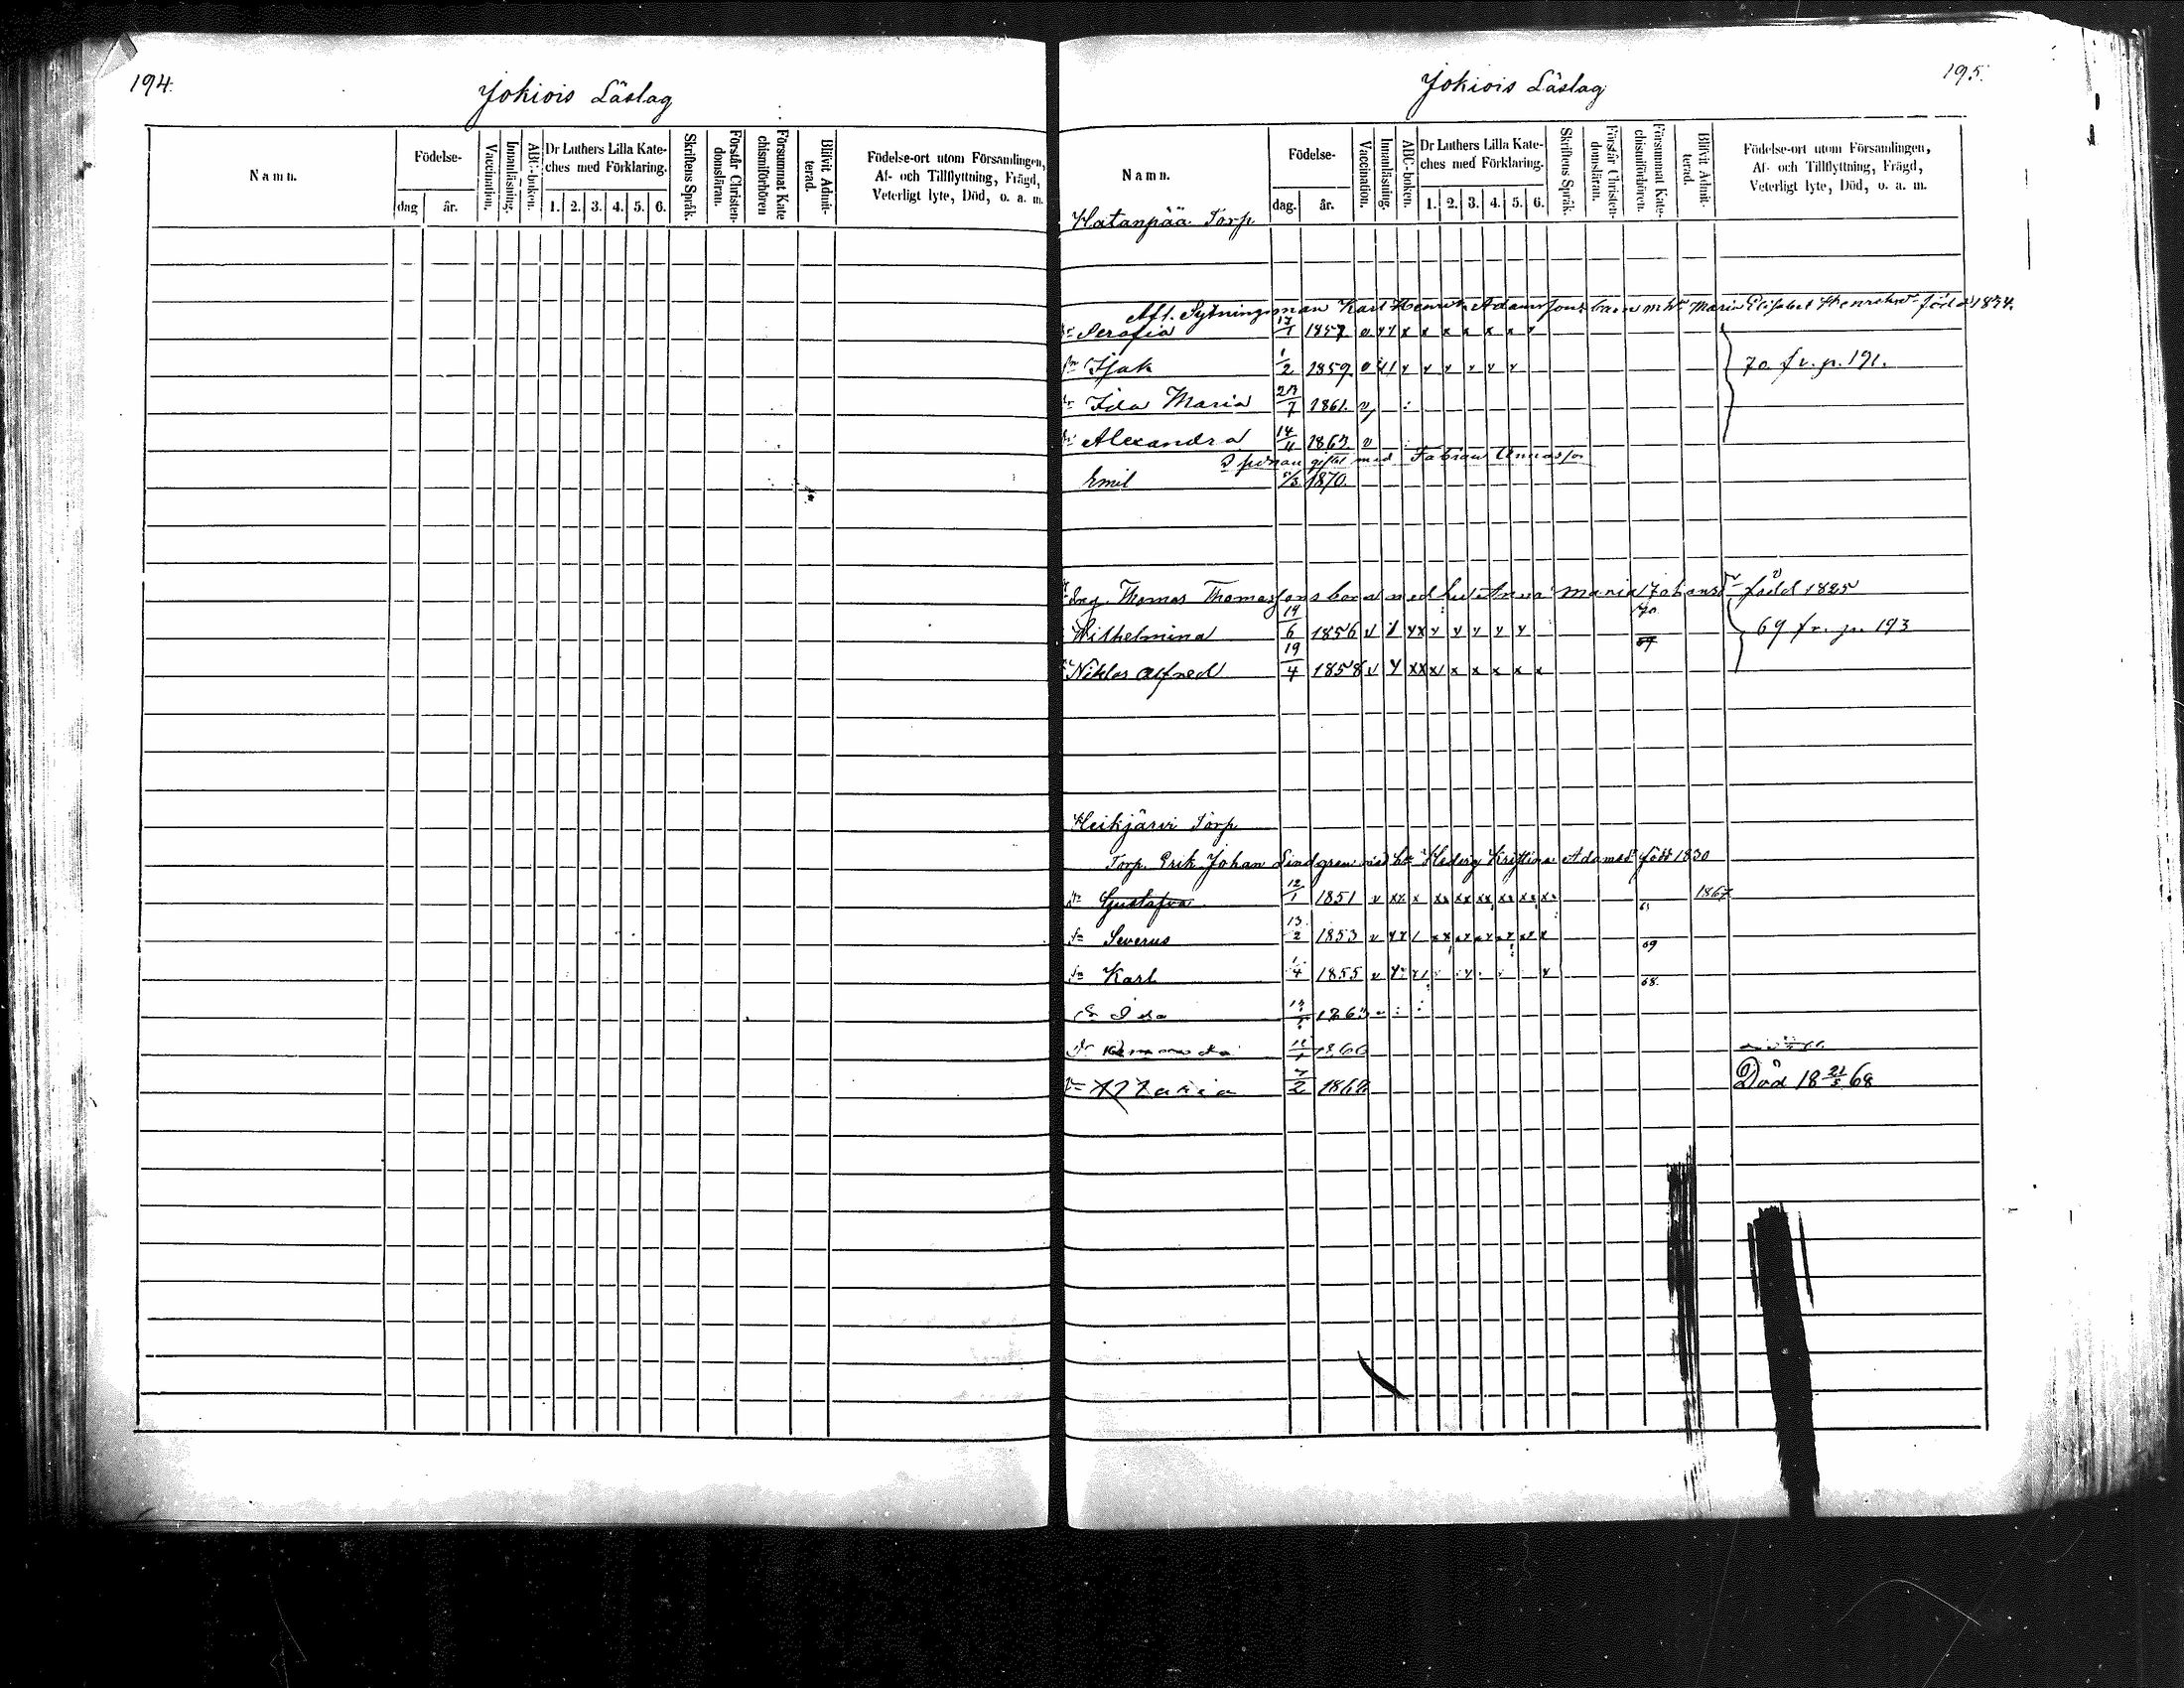 194.
Jokiois Läslag
Namn.
Födelse-
dag
år.
Vaccination.
Innanläsning.
ABC-boken.
Dr Luthers Lilla Kate-
ches med Förklaring.
1. 2. 3. 4. 5. 6.
Skriftens Språk.
Förstår Christen-
domsläran.
Försummat Kate
chismiförhören
Blifvit Admit-
terad.
Födelse-ort utom Församlingen,
Af- och Tillflyttning, Frägd,
Veterligt lyte, Död, o. a. m.
195.
Jokiois Läslag
Namn.
Födelse-
dag.
år.
Vaccination.
Innanläsning.
ABC-boken.
Dr Luthers Lilla Kate-
ches med Förklaring.
1. 2. 3. 4. 5. 6.
Skriftens Språk.
Förstår Christen-
domsläran.
Försummat Kate-
chismiförhören.
Blifvit Admit-
terad.
Födelse-ort utom Församlingen,
Af- och Tillflyttning, Frägd,
Veterligt lyte, Död, o. a. m.
Hatanpää Torp
Afl. Sytningsman Karl Henrik Adamssons barn m h. Maria Elisabet Henriksd. född 1834.
Serafia 17/1 1857
Isak 1/2 1859 70 fr. p. 191.
Ida Maria 27/7 1861.
Alexandra 14/11 1863
giftet med Fabian
Emil 5/3 1870.
Ing. Thomas Thomassons barn med hu Anna Maria Johansd. född 1825
Wilhelmina 19/6 1856 70 69 69 fr. p. 193
Niklas Alfred 19/4 1858
Heikjärvi Torp
Torp. Erik Johan Lindgren med h. Hedvig Kristina Adamsd. född 1830
dr Gustafva 12/1 1851 1867
sn Severus 13/2 1853 69
sn Karl 1/4 1855 68.
Ida 1863
1866
Maria 7/2 1868 Död 18 21/5 68